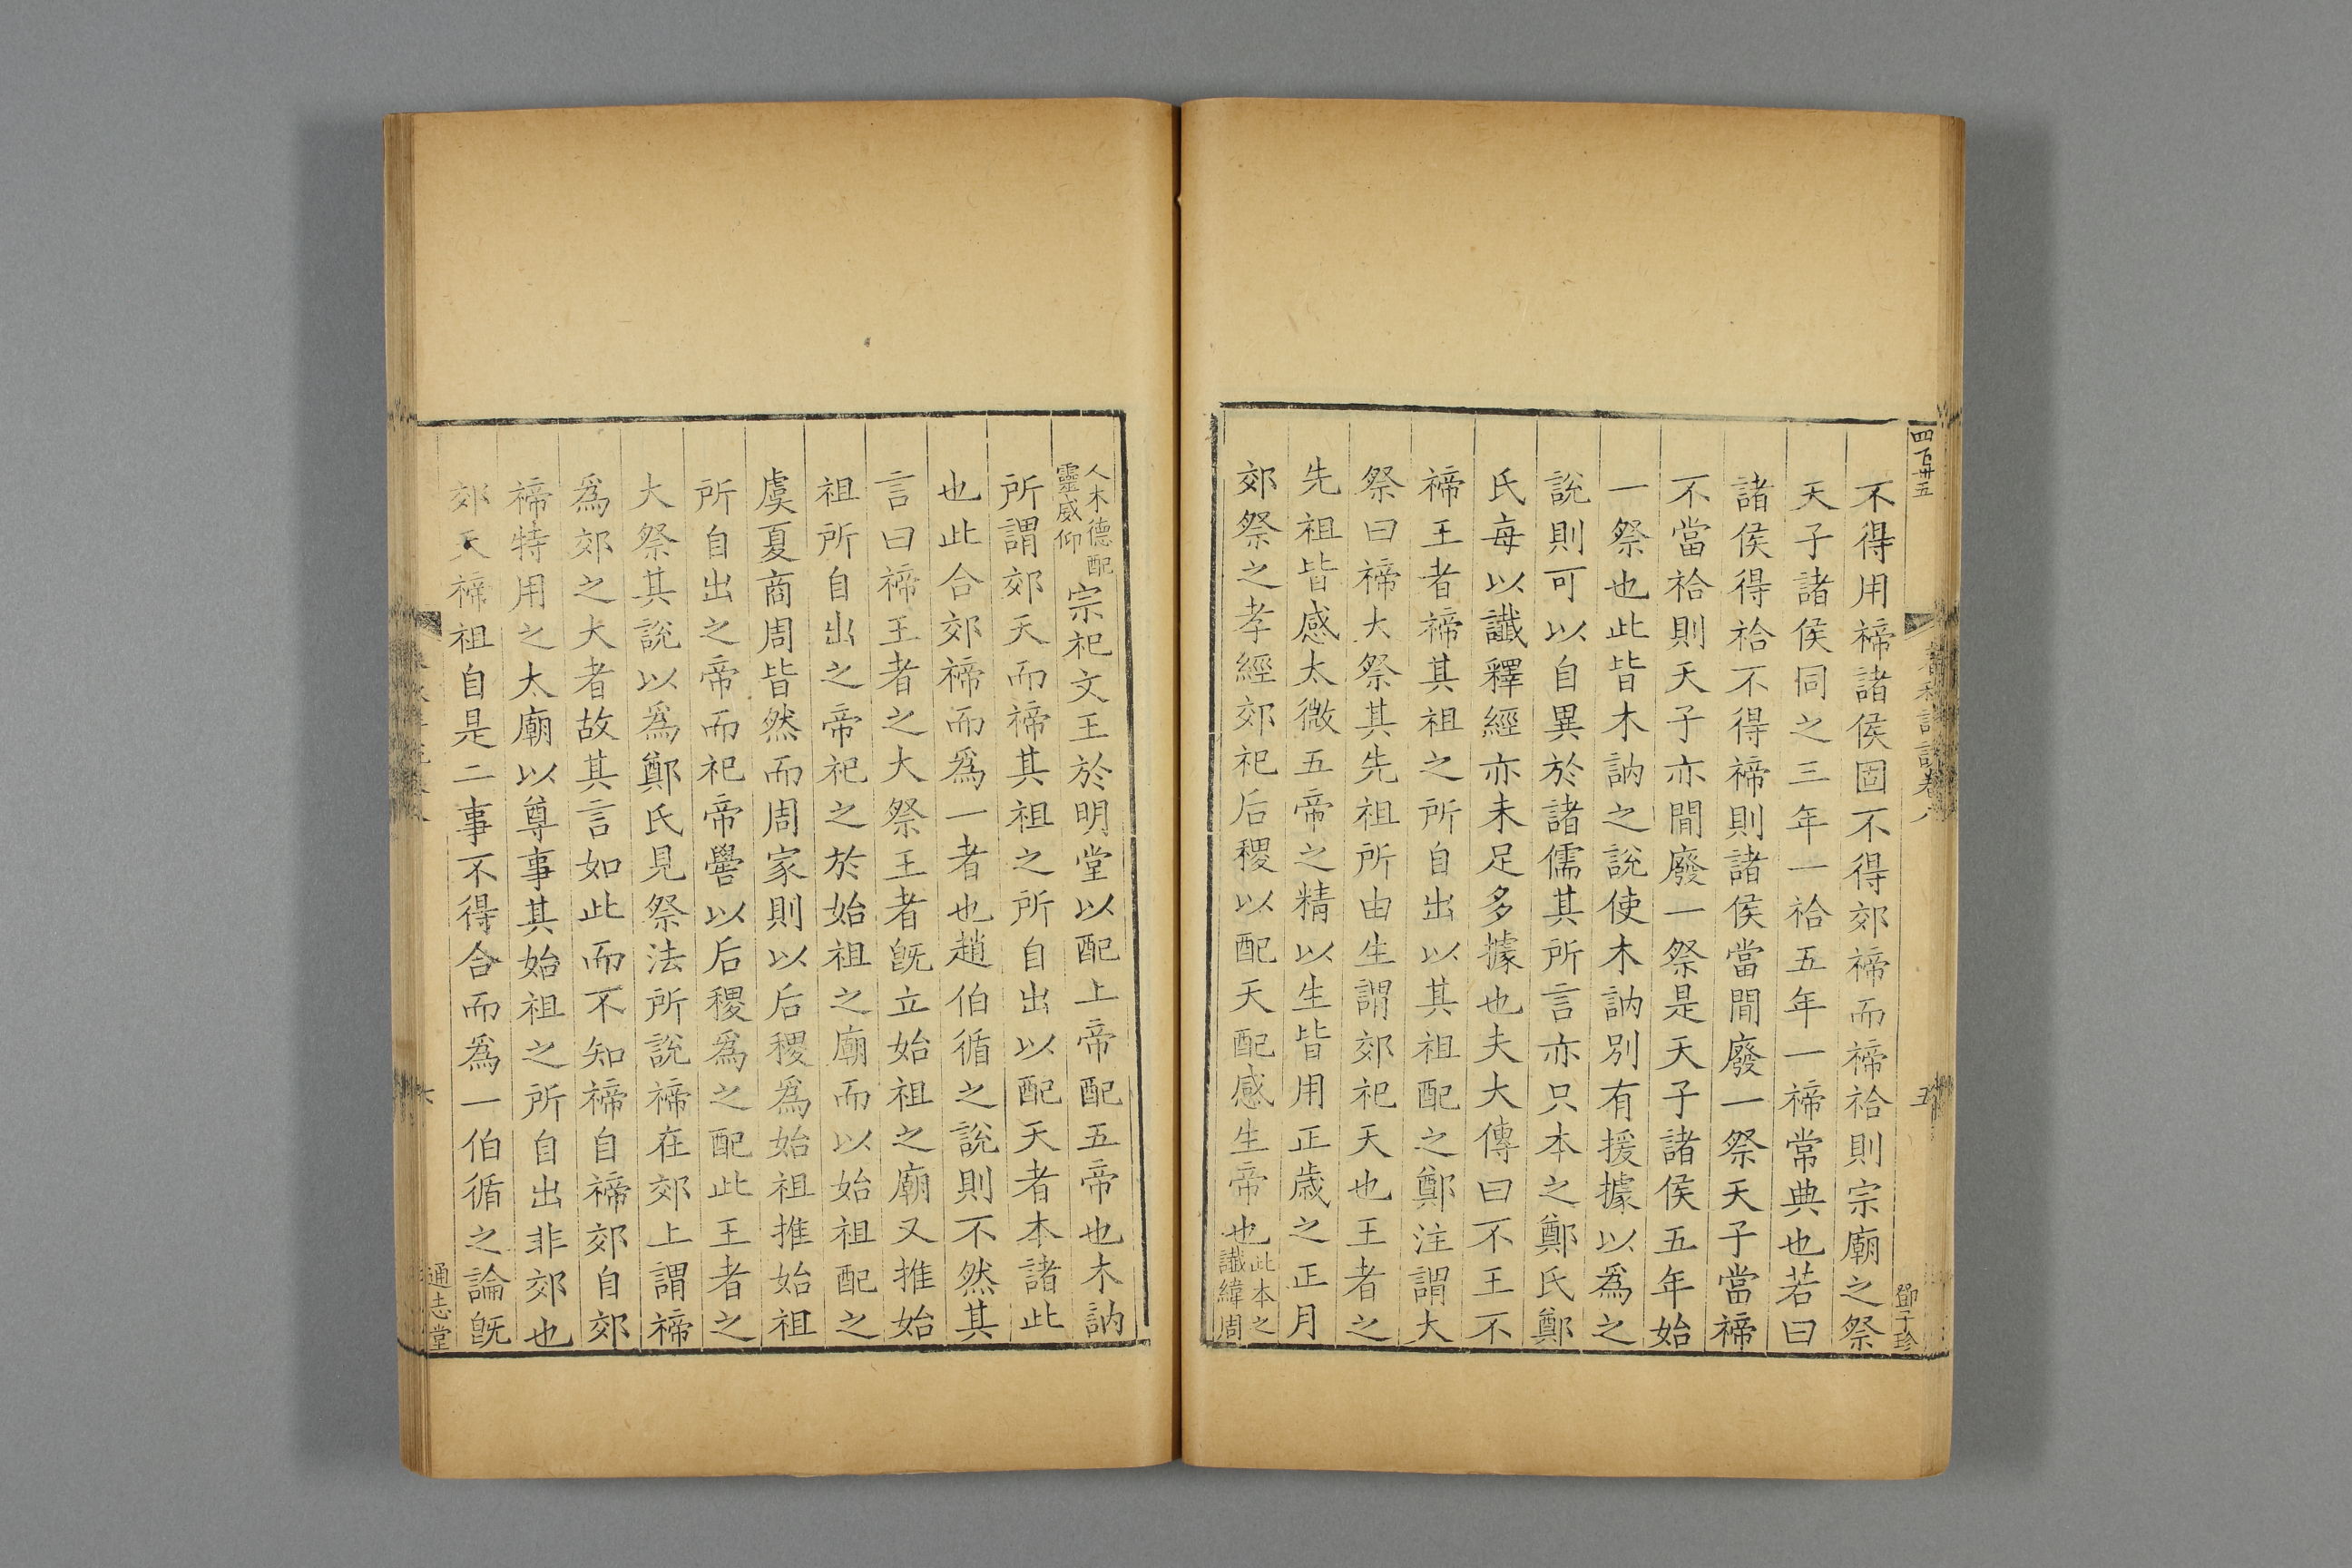 四百卅五
鄧子珍
五
不得用禘諸侯固不得郊禘而禘祫則宗廟之祭
天子諸侯同之三年一祫五年一禘常典也若曰
諸侯得祫不得禘則諸侯當間廢一祭天子當禘
不當祫則天子亦間廢一祭是天子諸侯五年始
一祭也此皆木訥之說使木訥別有援據以為之
說則可以自異於諸儒其所言亦只本之鄭氏鄭
氏每以讖釋經亦未足多據也夫大傳曰不王不
禘王者禘其祖之所自出以其祖配之鄭注謂大
祭曰禘大祭其先祖所由生謂郊祀天也王者之
先祖皆感太微五帝之精以生皆用正歲之正月
郊祭之孝經郊祀后稷以配天配感生帝也此本之
讖緯周
人木德配
靈威仰宗祀文王於明堂以配上帝配五帝也木訥
所謂郊天而禘其祖之所自出以配天者本諸此
也此合郊禘而為一者也趙伯循之說則不然其
言曰禘王者之大祭王者旣立始祖之廟又推始
祖所自出之帝祀之於始祖之廟而以始祖配之
虞夏商周皆然而周家則以后稷為始祖推始祖
所自出之帝而祀帝嚳以后稷為之配此王者之
大祭其說以為鄭氏見祭法所說禘在郊上謂禘
為郊之大者故其言如此而不知禘自禘郊自郊
禘特用之太廟以尊事其始祖之所自出非郊也
郊天禘祖自是二事不得合而為一伯循之論旣
六
通志堂